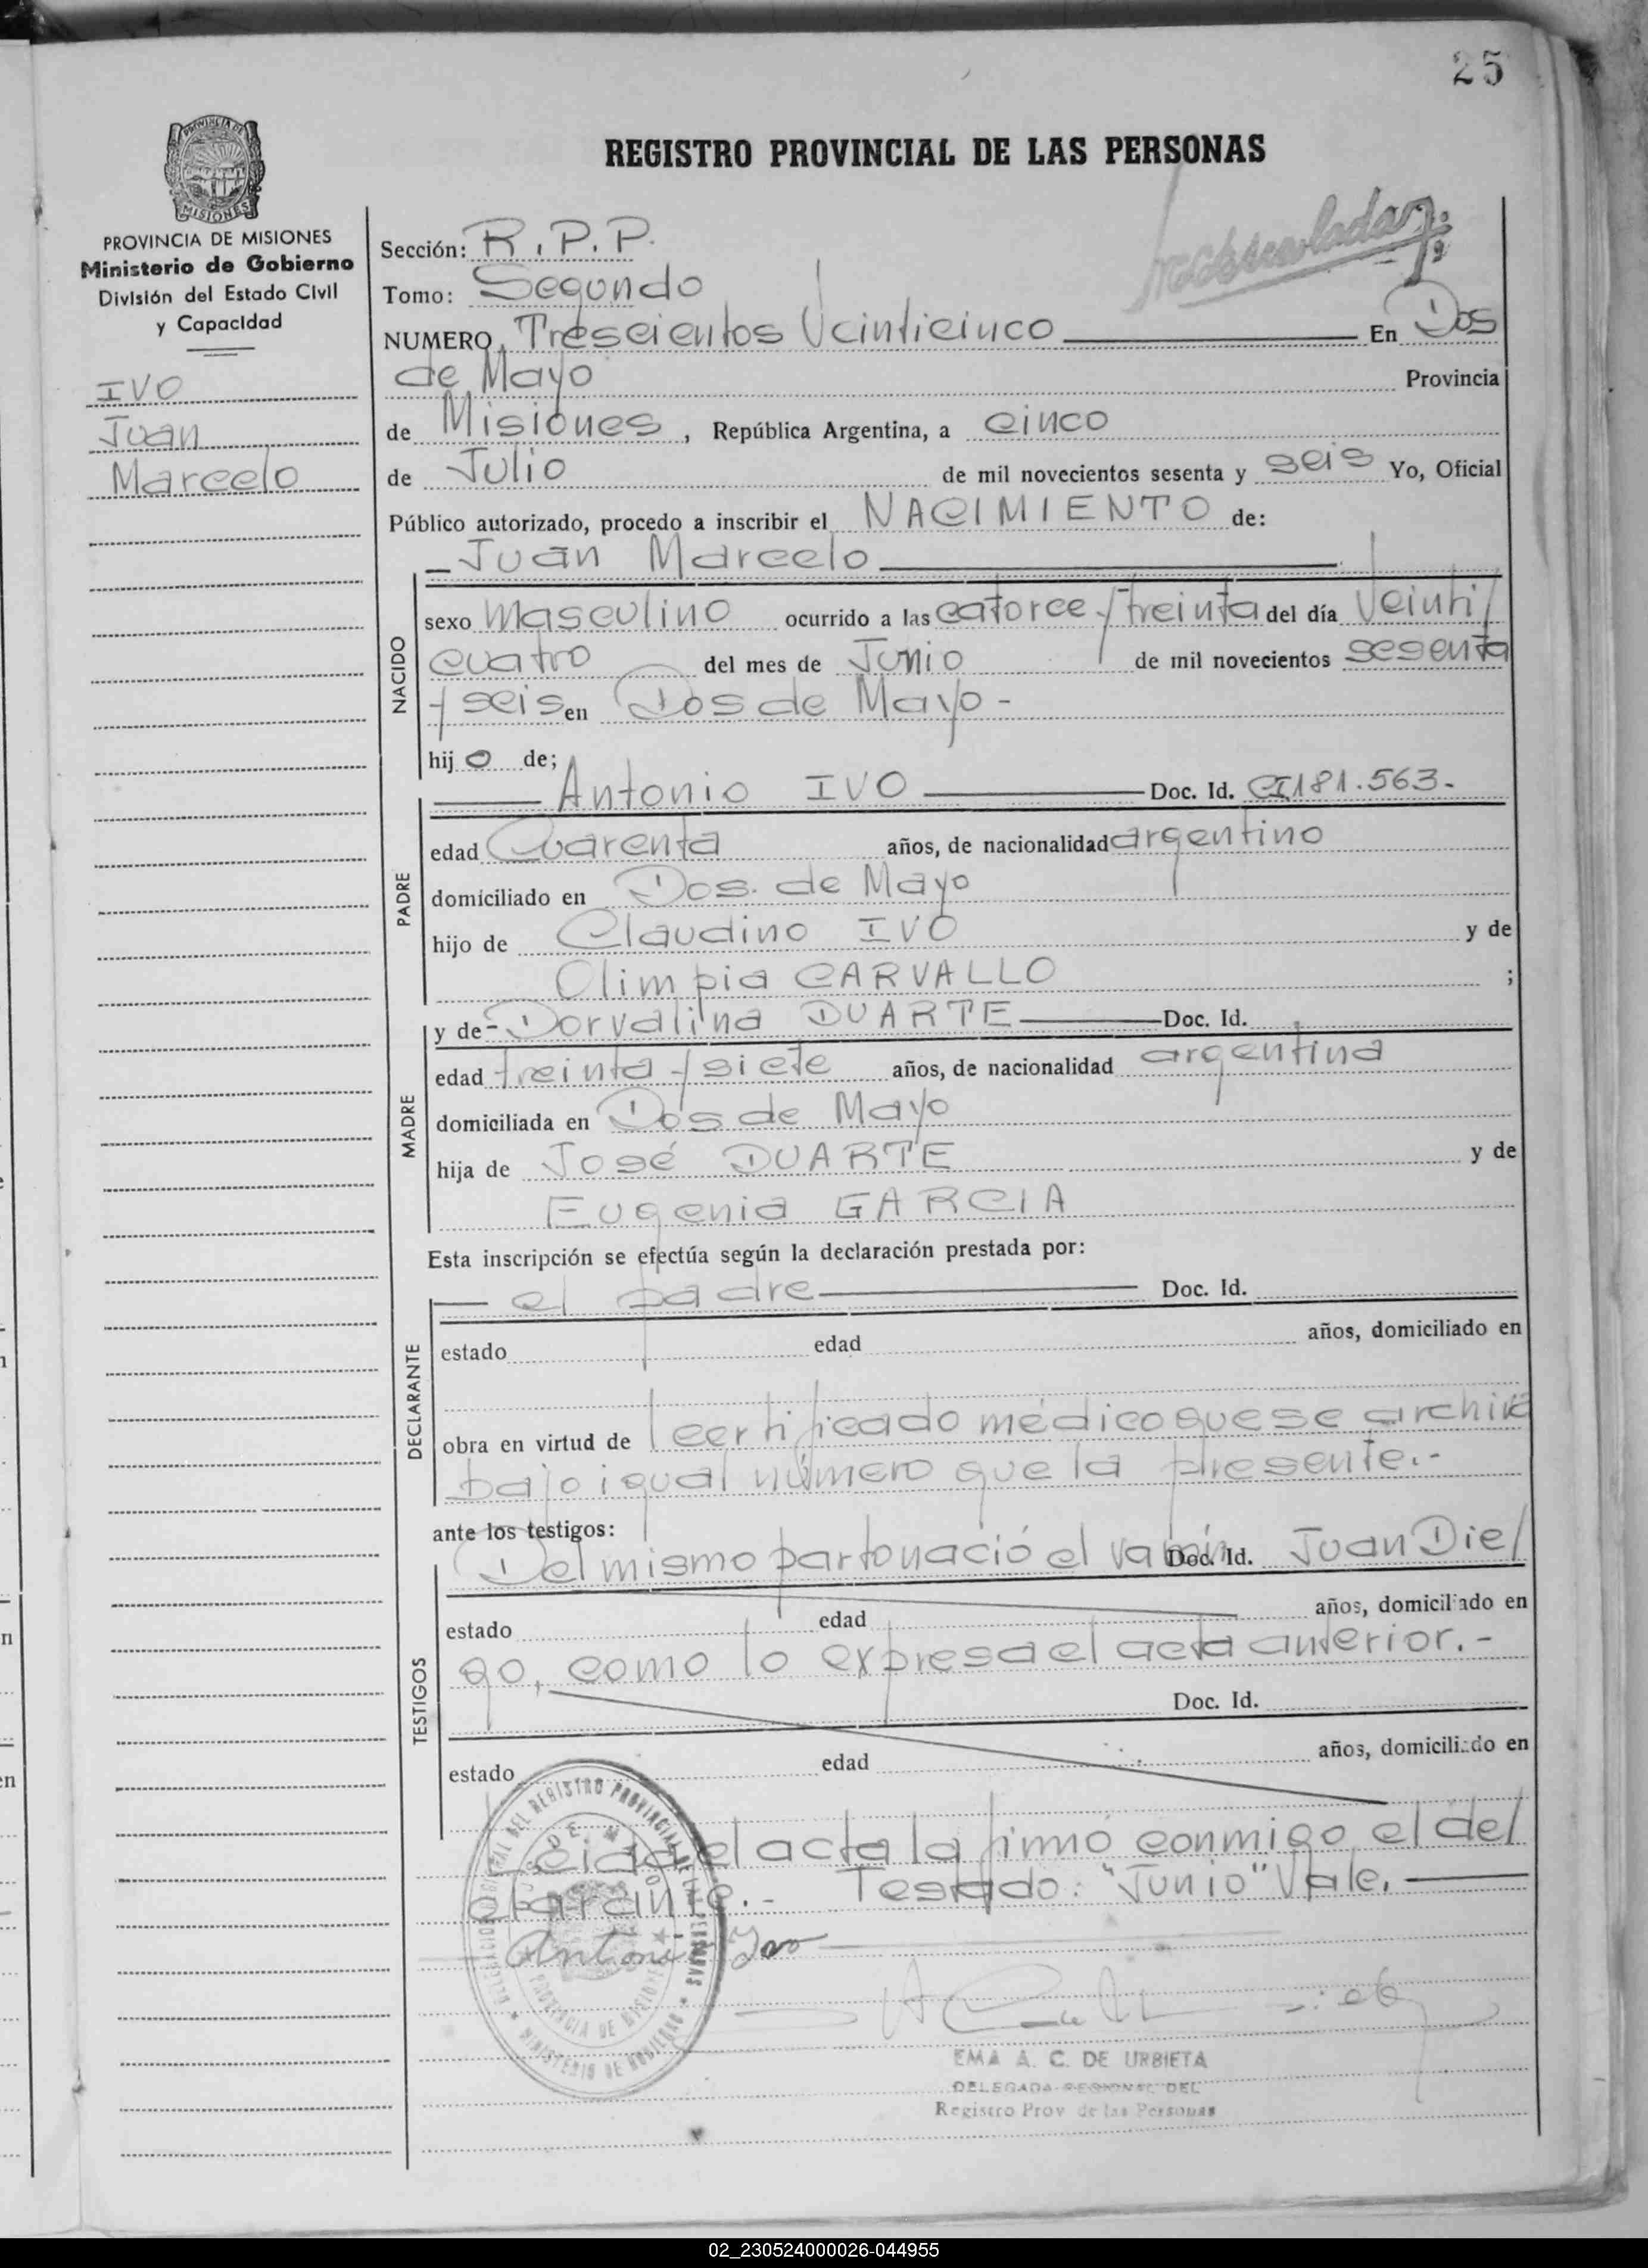 25
REGISTRO PROVINCIAL DE LAS PERSONAS
MISIONES
PROVINCIA DE MISIONES
Ministerio de Gobierno
División del Estado Civil
y Capacidad
IVO
Juan
Marcelo
Sección: R.P.P.
Tomo: Segundo
NUMERO Trescientos Veinticinco En Dos
de Mayo Provincia
de Misiones, República Argentina, a cinco
de Julio de mil novecientos sesenta y seis Yo, Oficial
Público autorizado, procedo a inscribir el NACIMIENTO de:
Juan Marcelo
NACIDO
sexo Masculino ocurrido a las catorce y treinta del día Veinti/
cuatro del mes de Junio de mil novecientos sesenta
y seis en Dos de Mayo -
hijo de;
PADRE
Antonio IVO Doc. Id. CI 181.563.-
edad Cuarenta años, de nacionalidad argentino
domiciliado en Dos de Mayo
hijo de Claudino IVO y de
Olimpia CARVALLO ;
MADRE
y de - Dorvalina DUARTE Doc. Id.
edad treinta y siete años, de nacionalidad argentina
domiciliada en Dos de Mayo
hija de José DUARTE y de
Eugenia GARCIA
Esta inscripción se efectúa según la declaración prestada por:
DECLARANTE
el padre Doc. Id.
estado edad años, domiciliado en
obra en virtud de l certificado médico que se archiva
bajo igual número que la presente.-
ante los testigos:
TESTIGOS
Del mismo parto nació el varón Doc. Id. Juan Die/
estado edad años, domiciliado en
go, como lo expresa el acta anterior.-
Doc. Id.
estado edad años, domiciliado en
Leida el acta la firmó conmigo el de/
clarante.- Testado: "Junio" Vale.
Antonio Ivo
DEL REGISTRO PROVINCIAL DE LAS PERSONAS
DOS DE MAYO
PROVINCIA DE MISIONES
MINISTERIO DE GOBIERNO
EMA A. C. DE URBIETA
DELEGADA REGIONAL DEL
Registro Prov. de las Personas
02_230524000026-044955